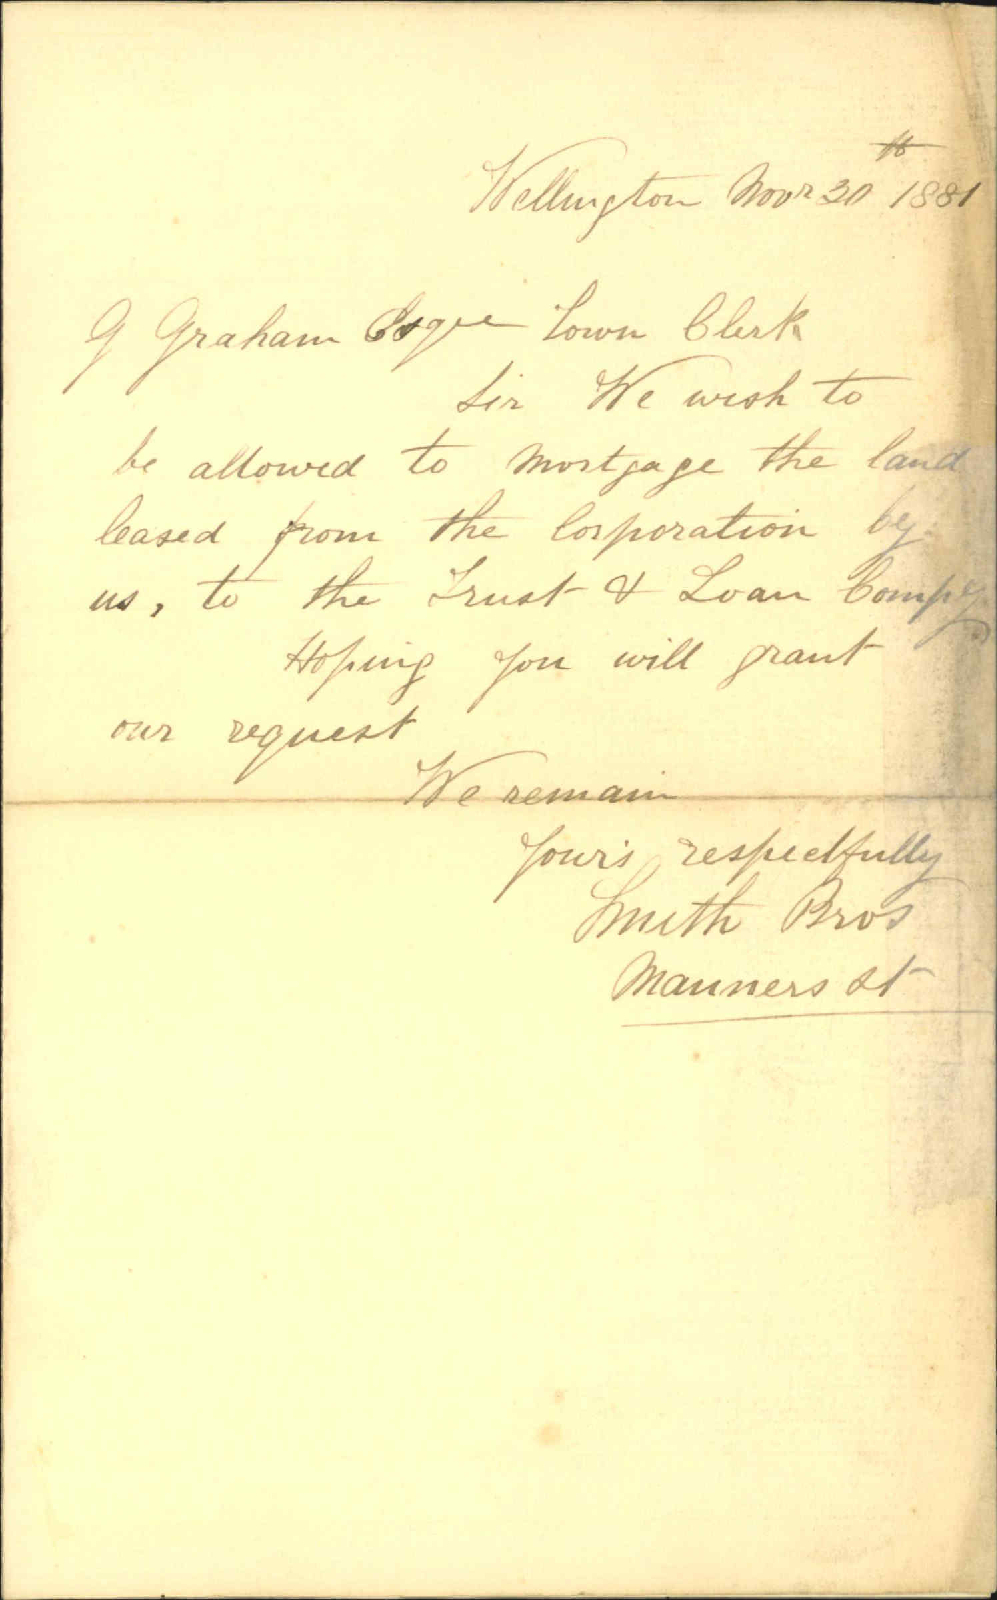 Wellington Novr 30th 1881
G Graham Esqre Town Clerk
Sir We wish to
be allowed to Mortgage the land
leased from the Corporation by
us, to the Trust & Loan Compy.
Hoping you will grant
our request
We remain
Yours respectfully
Smith Bros
Manners St